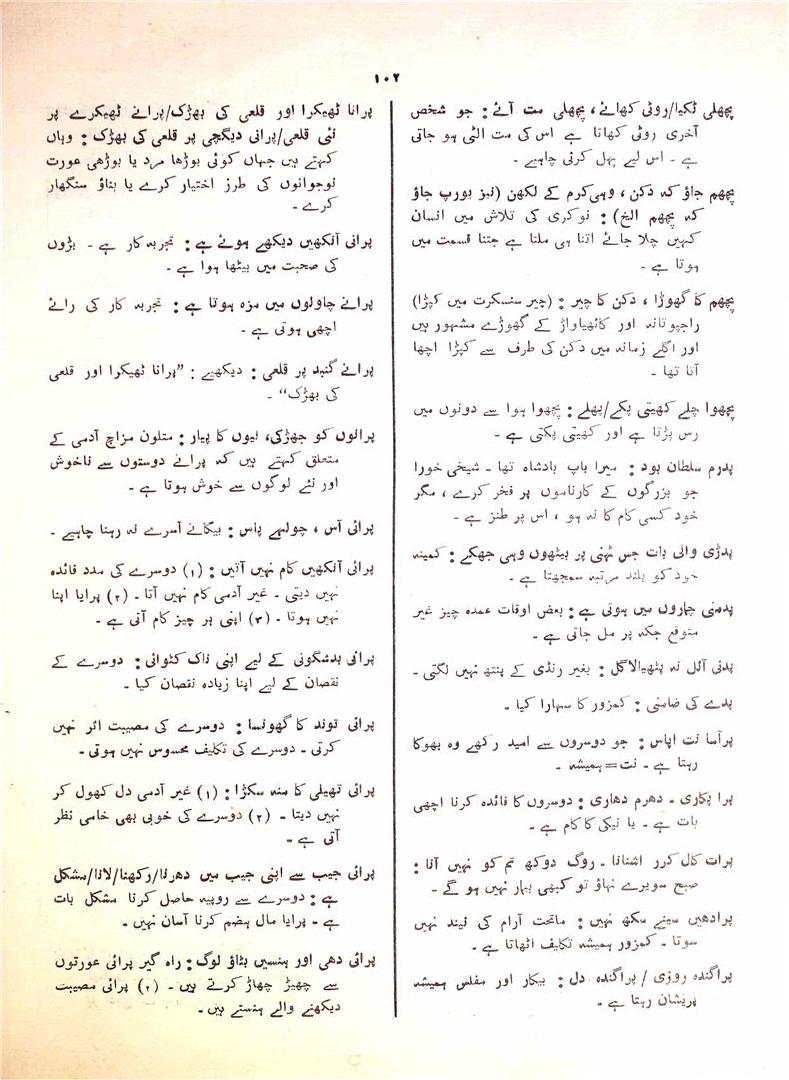 ۱۰۲
پچھلی ٹکیا/روٹی کھائے، پچھلی مت آئے: جو شخص
آخری روٹی کھاتا ہے اس کی مت الٹی ہو جاتی
ہے ۔ اس لیے پہل کرنی چاہیے ۔
پچھم جاؤ کہ دکن ، وہی کرم کے لکھن (نیز پورپ جاؤ
کہ پچھم الخ): نوکری کی تلاش میں انسان
کہیں چلا جائے اتنا ہی ملتا ہے جتنا قسمت میں
ہوتا ہے ۔
پچھم کا گھوڑا ، دکن کا چیر: (چیر سنسکرت میں کپڑا)
راجپوتانہ اور کاٹھیاواڑ کے گھوڑے مشہور ہیں
اور اگلے زمانہ میں دکن کی طرف سے کپڑا اچھا
آتا تھا ۔
پچھوا چلے کھیتی پکے/پھلے: پچھوا ہوا سے دونوں میں
رس پڑتا ہے اور کھیتی پکتی ہے ۔
پدرم سلطان بود: میرا باپ بادشاہ تھا ۔ شیخی خورا
جو بزرگوں کے کارناموں پر فخر کرے ، مگر
خود کسی کام کا نہ ہو ، اس پر طنز ہے ۔
پدڑی والی بات جس ٹہنی پر بیٹھوں وہی جھکے: کمینہ
خود کو بلند مرتبہ سمجھتا ہے ۔
پدمنی چاروں میں ہوتی ہے: بعض اوقات عمدہ چیز غیر
متوقع جگہ پر مل جاتی ہے ۔
پدنی آئل نہ پٹھیالاگل: بغیر رنڈی کے پنتھ نہیں لگتی ۔
پدے کی ضامنی: کمزور کا سہارا کیا ۔
پر آسا نت اپاس: جو دوسروں سے امید رکھے وہ بھوکا
رہتا ہے ۔ نت = ہمیشہ ۔
پرا پکاری ۔ دھرم دھاری: دوسروں کا فائدہ کرنا اچھی
بات ہے ۔ یا نیکی کا کام ہے ۔
پرات کال کرر اشنانا ۔ روگ دوکھ تم کو نہیں آنا:
صبح سویرے نہاؤ تو کبھی بیمار نہیں ہو گے ۔
پرادھیں سپنے سکھ نہیں: ماتحت آرام کی نیند نہیں
سوتا ۔ کمزور ہمیشہ تکلیف اٹھاتا ہے ۔
پراگندہ روزی / پراگندہ دل: بیکار اور مفلس ہمیشہ
پریشان رہتا ہے ۔
پرانا ٹھیکرا اور قلعی کی بھڑک/پرانے ٹھیکرے پر
نئی قلعی/پرانی دیگچی پر قلعی کی بھڑک: وہاں
کہتے ہیں جہاں کوئی بوڑھا مرد یا بوڑھی عورت
نوجوانوں کی طرز اختیار کرے یا بناؤ سنگھار
کرے ۔
پرانی آنکھیں دیکھے ہوئے ہے: تجربہ کار ہے ۔ بڑوں
کی صحبت میں بیٹھا ہوا ہے ۔
پرانے چاولوں میں مزہ ہوتا ہے: تجربہ کار کی رائے
اچھی ہوتی ہے ۔
پرانے گنبد پر قلعی: دیکھیے : ”پرانا ٹھیکرا اور قلعی
کی بھڑک“ ۔
پرانوں کو جھڑکی، نیوں کا پیار: متلون مزاج آدمی کے
متعلق کہتے ہیں کہ پرانے دوستوں سے ناخوش
اور نئے لوگوں سے خوش ہوتا ہے ۔
پرائی آس ، چولہے پاس: بیگانے آسرے نہ رہنا چاہیے ۔
پرائی آنکھیں کام نہیں آتیں: (۱) دوسرے کی مدد فائدہ
نہیں دیتی ۔ غیر آدمی کام نہیں آتا ۔ (۲) پرایا اپنا
نہیں ہوتا ۔ (۳) اپنی ہر چیز کام آتی ہے ۔
پرائی بدشگونی کے لیے اپنی ناک کٹوائی: دوسرے کے
نقصان کے لیے اپنا زیادہ نقصان کیا ۔
پرائی توند کا گھونسا: دوسرے کی مصیبت اثر نہیں
کرتی ۔ دوسرے کی تکلیف محسوس نہیں ہوتی ۔
پرائی تھیلی کا منہ سکڑا: (۱) غیر آدمی دل کھول کر
نہیں دیتا ۔ (۲) دوسرے کی خوبی بھی خامی نظر
آتی ہے ۔
پرائی جیب سے اپنی جیب میں دھرنا/رکھنا/لانا/مشکل
ہے: دوسرے سے روپیہ حاصل کرنا مشکل بات
ہے ۔ پرایا مال ہضم کرنا آسان نہیں ۔
پرائی دھی اور ہنسیں بٹاؤ لوگ: راہ گیر پرائی عورتوں
سے چھیڑ چھاڑ کرتے ہیں ۔ (۲) پرائی مصیبت
دیکھنے والے ہنستے ہیں ۔